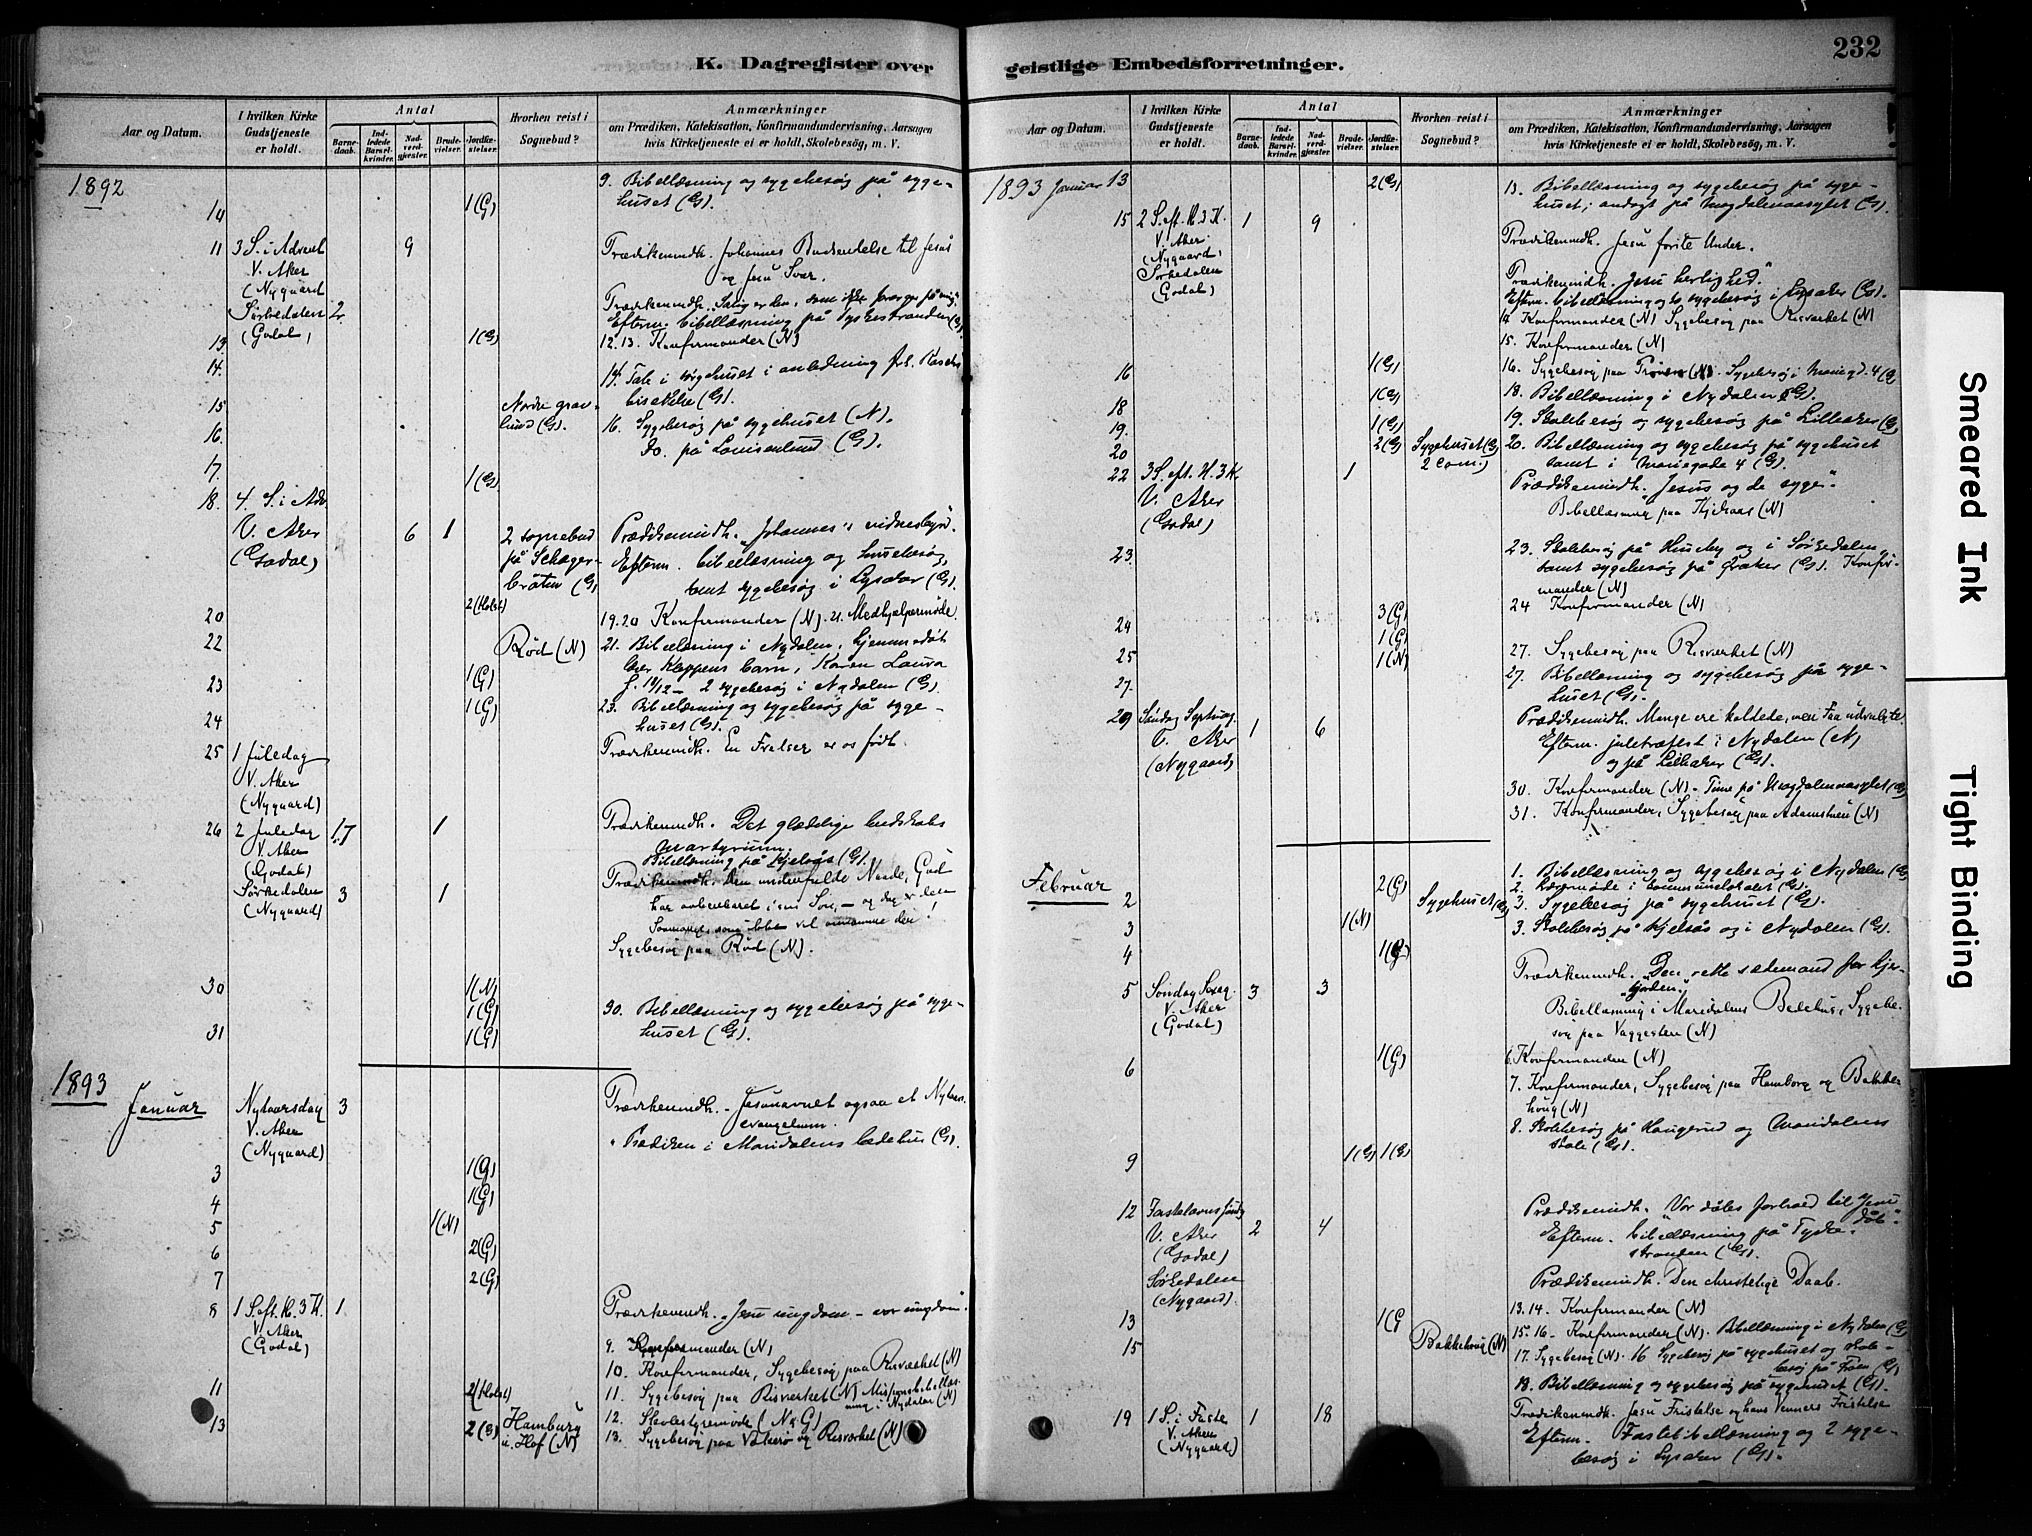 K. Dagregister over
Aar og Datum.
I hvilken Kirke Gudstjeneste er holdt.
Antal
Barnedaab.
Indledede Barselkvinder.
Nadverdgjæster.
Brudevielser.
Jordfæstelser.
Hvorhen reist i Sognebud?
Anmærkninger
om Prædiken, Katekisation, Konfirmandundervisning, Aarsagen
hvis Kirketjeneste ei er holdt, Skolebesøg, m. V.
1892
9. Bibellæsning og sygebesøg på syge-
14 1(G) huset (G).
11 3 S. i Advent 9 Prædikenindh. Johannes Budsendelse til Jesus
V. Aker og Jesu Svar.
(Nygaard)
Sørkedalen 2
(Godal) Efterm. bibellæsning på
13 1(G) 12.13. Konfirmander (N)
14. 14. Tale i sygehuset i anledning
15 Nordre grav- (G).
lund (G). 16. Sygebesøg på sygehuset (N).
16. do. på Louisenlund (G).
17. 1(G)
18. 4. S. i Adv.
V. Aker 6 1 2 sognebud Prædikenindh. Johannes's vidnesbyrd.
(Godal) på Efterm. bibellæsning og husbesøg
bråten (G) samt sygebesøg i Lysaker (G).
2(Holst)
20 19.20 Konfirmander (N). 21. Medhjælpermøde.
22 Rød (N) 21. Bibellæsning i Nydalen, hjemmedøbt
barn, Karen Laura
23 1(G) 2 sygebesøg i Nydalen (G).
1(G) 23. Bibellæsning og sygebesøg på syge-
24 huset (G).
25 1 Juledag Prædikenindh. En Frelser er os født.
V. Aker
(Nygaard)
26 2 Juledag 17 1 Prædikenindh. Det glædelige budskabs
V. Aker martyrium.
(Godal) Bibellæsning på Kjelsås (G).
Sørkedalen 3 1 Prædikenindh. Den Naade, Gud
(Nygaard) har aabenbaret i sin Søn, - og
Sygebesøg paa Rød (N).
30 1(N)
1(G) 30. Bibellæsning og sygebesøg på syge-
31 1(G) huset (G).
1893
Januar Nytaarsdag 3 Prædikenindh. - Jesunavnet ogsaa et Nytaars-
V. Aker evangelium.
(Nygaard) " Prædiken i Maridalens bedehus (G).
3 1(G)
4 1(G)
5 1(N)
6 2(G)
7 2(G)
8 1 S. eft. H. 3 K. 1. Prædikenindh. "Jesu ungdom - vor ungdom".
V. Aker
(Godal) 9. Konfirmander (N)
10. Konfirmander, Sygebesøg paa Risværket (N)
11 2(Holst) 11. Sygebesøg paa Risværket (N) Missionsbibellæs-
ning i Nydalen (N)
13 2(G) Hamburg 12. Skolestyremøde (N & G)
u. Hof (N) 13. Sygebesøg paa Vækerø og Risværket (N)
geistlige Embedsforretninger.
232
Aar og Datum.
I hvilken Kirke Gudstjeneste er holdt.
Antal
Barnedaab.
Indledede Barselkvinder.
Nadverdgjæster.
Brudevielser.
Jordfæstelser.
Hvorhen reist i Sognebud?
Anmærkninger
om Prædiken, Katekisation, Konfirmandundervisning, Aarsagen
hvis Kirketjeneste ei er holdt, Skolebesøg, m. V.
1893 Januar 13 2(G) 13. Bibellæsning og sygebesøg på syge-
huset; andagt på Magdalenaasylet (G).
15 2 S. eft. H. 3 K. 1 9
V. Aker Prædikenindh. Jesu første Under.
(Nygaard)
Sørkedalen Prædikenindh. "Jesu herlighed".
(Godal) Efterm. bibellæsning og sygebesøg i Lysaker (G).
14 Konfirmander (N) Sygebesøg paa Risværket (N)
15. Konfirmander (N)
16 1(G) 16. Sygebesøg paa Frøen (N). Sygebesøg i Marieg d. 4 (G)
18 1(G) 18. Bibellæsning i Nydalen (G).
19. 1(G) 19. Skolebesøg og sygebesøg på Lilleaker (G)
20 2(G) Sygehuset (G) 20. Bibellæsning og sygebesøg på sygehuset
2 com.) samt i Mariegade 4 (G).
22 3 S. eft. H. 3 K. 1 Prædikenindh. Jesus og de syge".
V. Aker Bibellæsning paa Kjelsaas (N)
(Godal)
23. 23. Skolebesøg på Huseby og i Sørkedalen,
samt sygebesøg på Øraker (G). Konfir-
mander (N)
24 3(G) 24 Konfirmander (N)
1(G)
25 1(N) 27. Sygebesøg paa Risværket (N)
27. 27. Bibellæsning og sygebesøg på syge-
huset (G).
29 Søndag Septuag. Prædikenindh. Mange ere kaldede, men Faa udvalgte
V. Aker 1 6 Efterm. juletræfest i Nydalen (N)
(Nygaard) og på Lilleaker (G).
30. Konfirmander (N) - Time på Magdalenaasylet (G)
31. Konfirmander, Sygebesøg paa Adamstuen (N)
Februar
1. Bibellæsning og sygebesøg i Nydalen (G)
2 2(G) Sygehuset (G) 2. møde i kommunelokalet (G).
3. Sygebesøg på sygehuset (G).
3 1(N) 3. Skolebesøg på Kjelsås og i Nydalen (G).
4 1(G)
5 Søndag Sexag. 3 3 Prædikenindh. "Den rette sædemand for hjer-
V. Aker tejorden."
(Godal) Bibellæsning i Maridalens Bedehus, Sygebe-
søg paa Vaggesten (N)
6 1(G) 6. Konfirmander (N)
7. Konfirmander, Sygebesøg paa Hamborg og Bakke-
houg (N)
8. Skolebesøg på Haugerud og Maridalens
9 1(G) 1(G) skole (G).
12 Fastelavns Søndag Prædikenindh. "Vor dåbs forhold til Jesu
V. Aker 2 4 dåb".
(Godal) Efterm. bibellæsning på Tyske-
stranden (G).
Sørkedalen Prædikenindh. Den christelige Daab.
(Nygaard).
13 1(G 13.14. Konfirmander (N)
15 Bakkehoug (N) 15.16 - Konfirmander (N). Bibellæsning i Nydalen (G)
17. Sygebesøg (N). 16 Sygebesøg på sygehuset og skole-
besøg på Frøen (G)
18. Bibellæsning og sygebesøg på sygehuset (G).
19 1 S. i Faste 1 18 Prædikenindh. Jesu Fristelse og hans Venners Fristelse
V. Aker Efterm. Fastebibellæsning og 2 syge-
(Nygaard) besøg i Lysaker (G).
Smeared Ink
Tight Binding